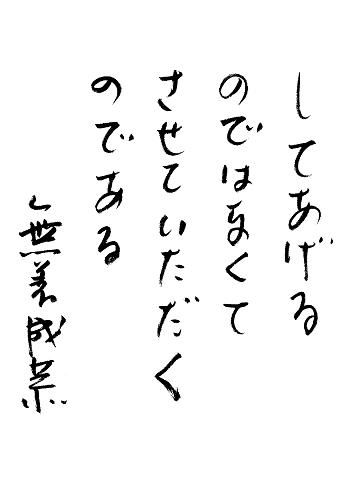 してあげる
のではなくて
させていただく
のである
無着成恭